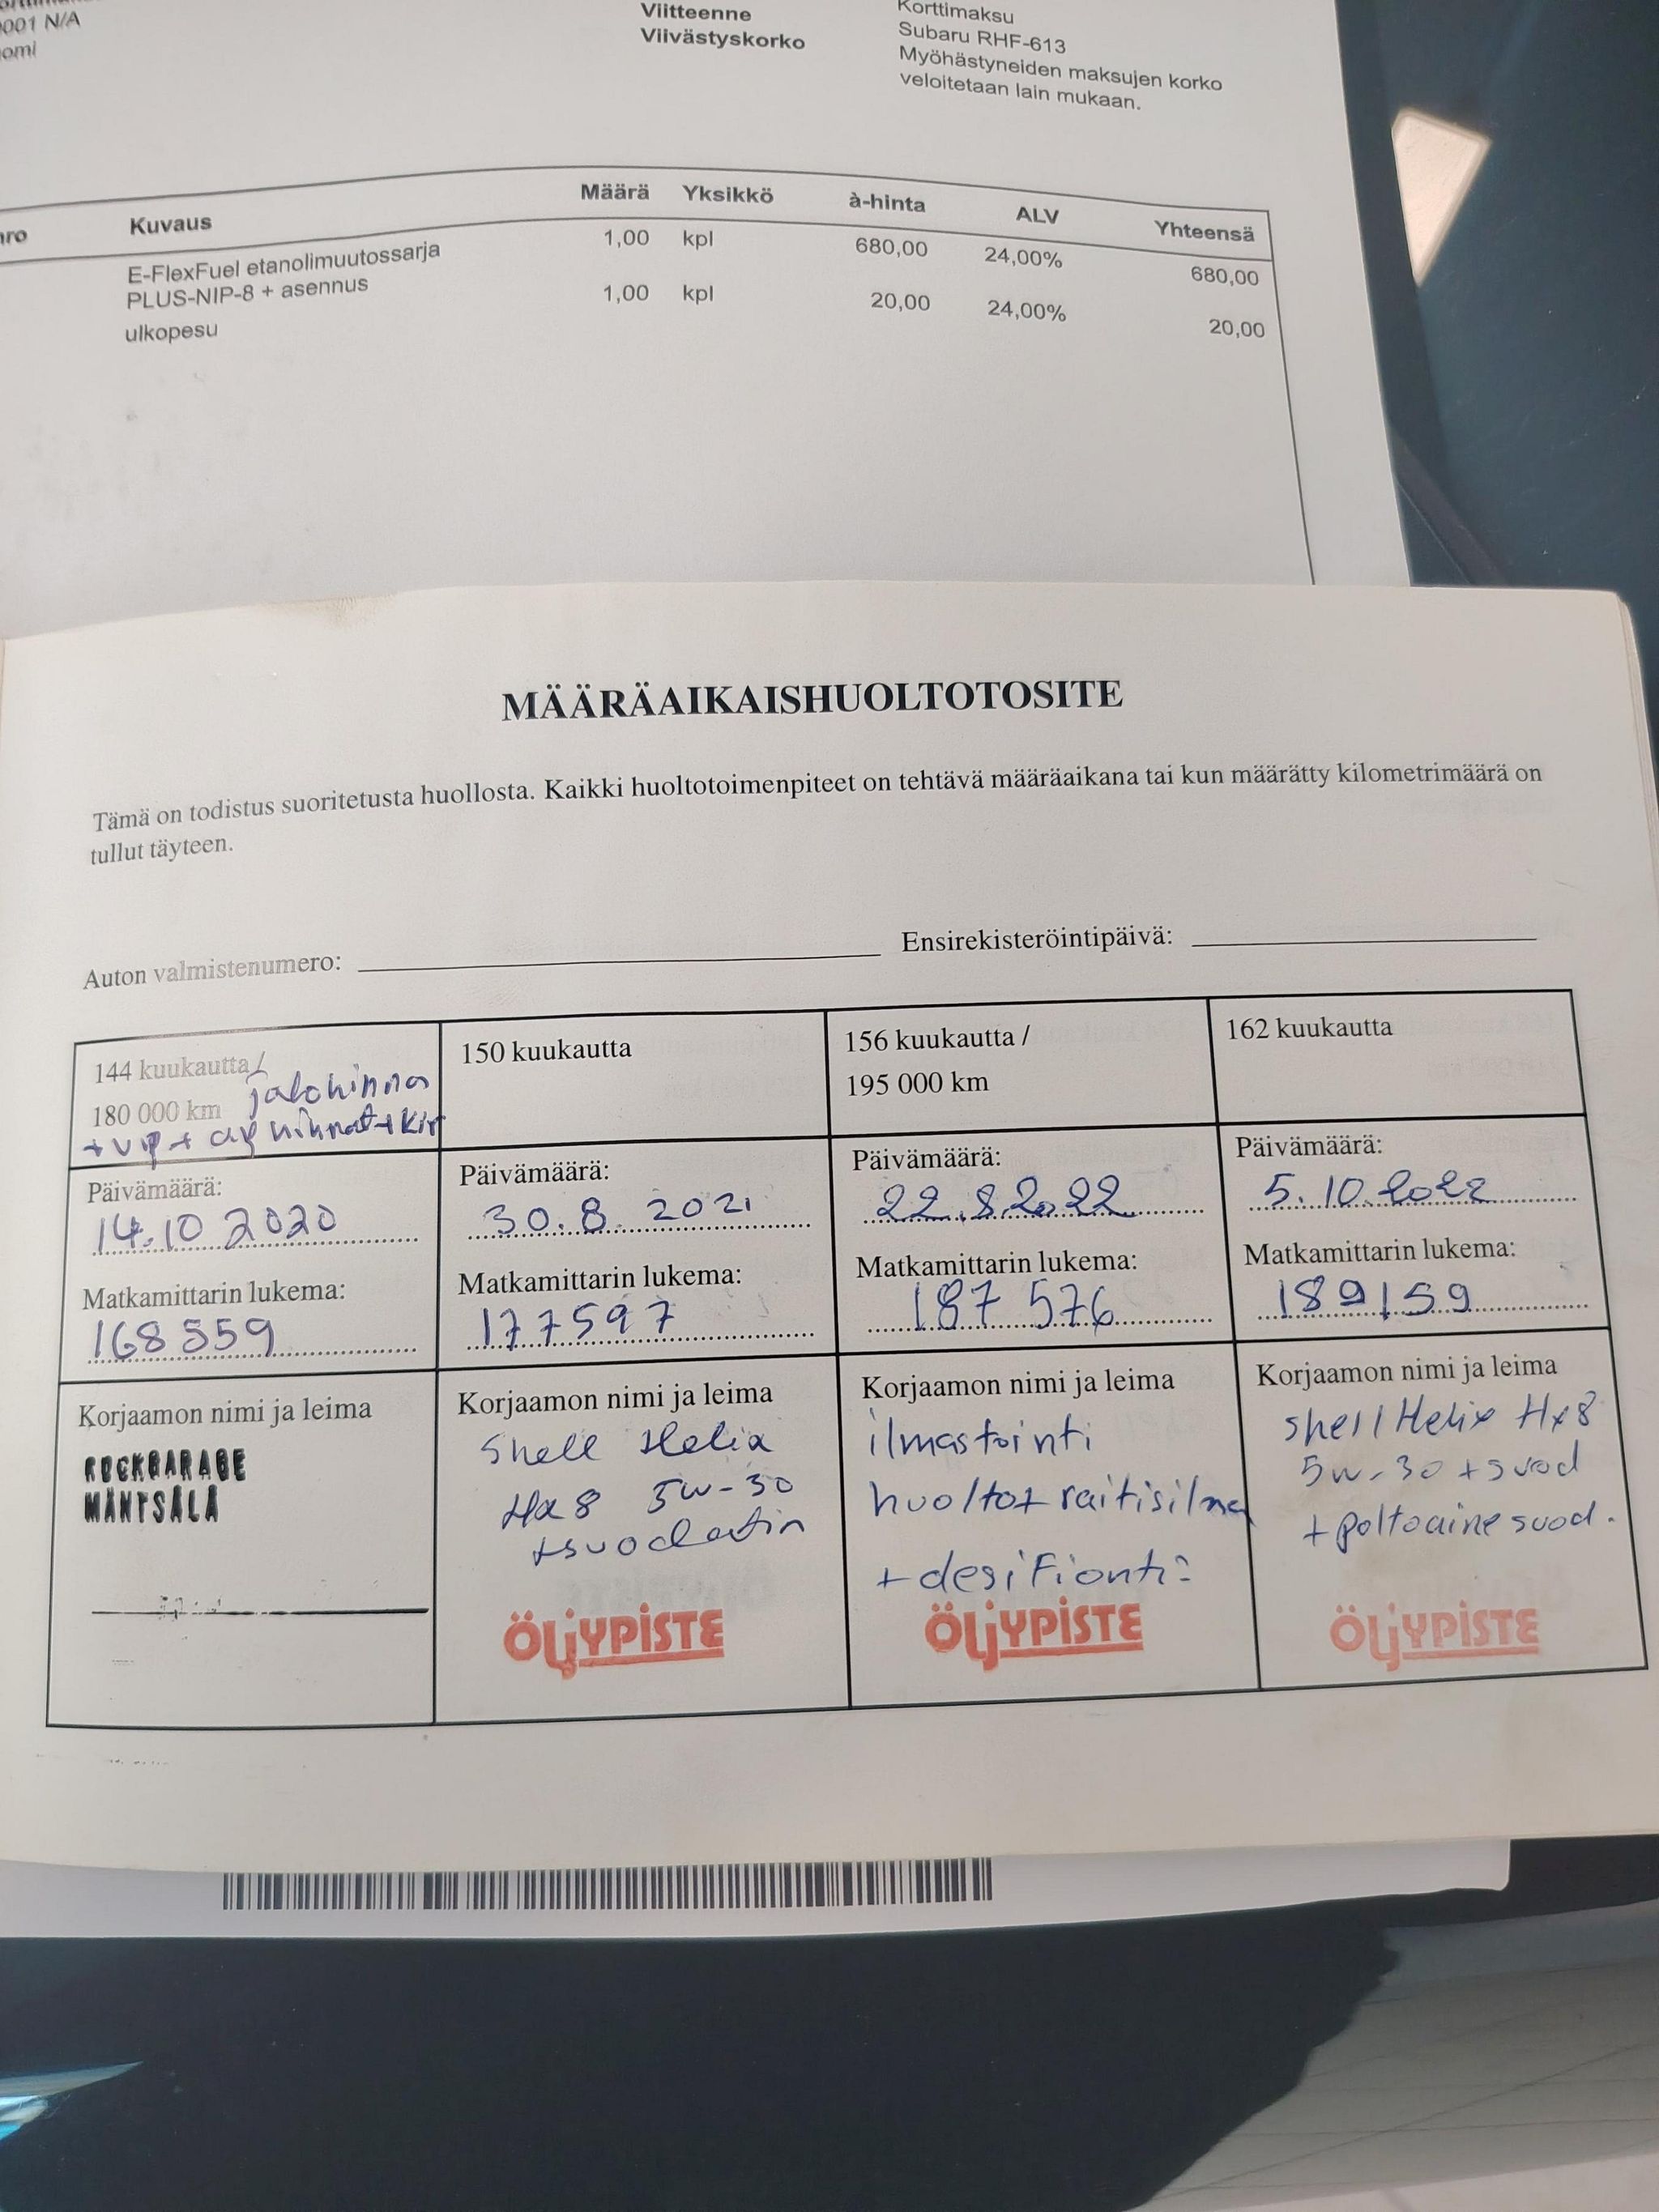 001 N/A
omi
Viitteenne
Viivästyskorko
Korttimaksu
Subaru RHF-613
Myöhästyneiden maksujen korko
veloitetaan lain mukaan.
nro Kuvaus Määrä Yksikkö à-hinta ALV Yhteensä
E-FlexFuel etanolimuutossarja 1,00 kpl 680,00 24,00% 680,00
PLUS-NIP-8 + asennus
ulkopesu 1,00 kpl 20,00 24,00% 20,00
MÄÄRÄAIKAISHUOLTOTOSITE
Tämä on todistus suoritetusta huollosta. Kaikki huoltotoimenpiteet on tehtävä määräaikana tai kun määrätty kilometrimäärä on
tullut täyteen.
Auton valmistenumero:
Ensirekisteröintipäivä:
144 kuukautta /
180 000 km jakohinna
+ vip + ap hihnat + kir
Päivämäärä:
14.10 2020
Matkamittarin lukema:
168 559
Korjaamon nimi ja leima
ROCKGARAGE
MÄNTSÄLÄ
150 kuukautta
Päivämäärä:
30.8. 2021
Matkamittarin lukema:
177597
Korjaamon nimi ja leima
Shell Helix
Hx8 5w-30
+suodatin
ÖLJYPISTE
156 kuukautta /
195 000 km
Päivämäärä:
22.8.2022
Matkamittarin lukema:
187 576
Korjaamon nimi ja leima
ilmastointi
huolto+ raitisilma
+ desifionti
ÖLJYPISTE
162 kuukautta
Päivämäärä:
5.10.2022
Matkamittarin lukema:
189159
Korjaamon nimi ja leima
Shell Helix Hx8
5w-30 + suod
+ poltoaine suod.
ÖLJYPISTE